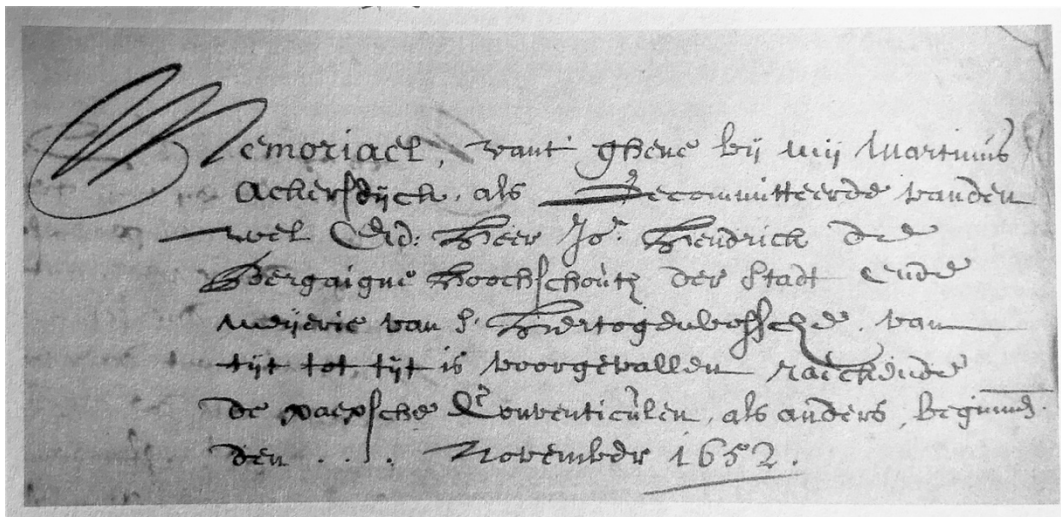 Memoriael, vant ghene bij mij Martinus
Ackersdijck, als Gecommitteerde vanden
wel Ed: Heer Jor. Hendrick de
Bergaigne Hoochschoutz der Stadt Ende
Meijerie van S. Hertogenbossche, van
tijt tot tijt is voorgevallen raeckende
de paepsche Conventiculen, als anders, beginnende
den . . . . November 1652.